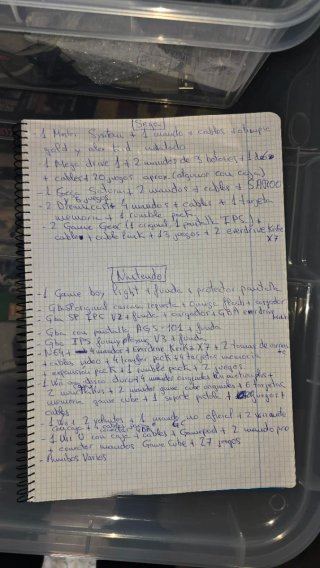 Sega
- 1 Master System + 1 mando + cables + olimpic
gold y alex kidd incluido
- 1 Mega drive 1 + 2 mandos de 3 botones + 1 de 6
+ cables + 20 juegos aprox (algunos con caja)
- 1 Sega Saturn + 2 mandos + cables +
y 8 juegos
- 2 Dreamcast + 4 mandos + cables + 1 tarjeta
memoria + 1 rumble pack
- 2 Game Gear (1 original, 1 pantalla IPS) +
cables + cable link + 13 juegos + 2 everdrive Krikz
X7
Nintendo
- 1 Game boy light + funda + protector pantalla
- Gba original carcasa + Omega Flash + cargador
- Gba SP IPS V2 + funda + cargador + GBA everdrive
- Gba con pantalla AGS-101 + funda
- Gba IPS funnyplaying V3 + funda
- N64 + 4 mandos + Everdrive Krikz X7 + 2 tomas de corriente
+ cables video + 4 rumber pack + 4 tarjetas memoria
+ expansion pack + 1 rumble pack + 2 juegos
- 1 Wii disco duro + 4 mandos originales
2 nunchukos + 2 mandos game cube originales + 6 tarjetas
memoria game cube + 1 soporte + juegos +
cables
- 1 Wii + 2 + 1 mando no oficial + 2
con caja
- 1 Wii U con caja + cables + Gamepad + 2 mando pro
+ conector mandos Game Cube + 27 juegos
- Amiibos Varios